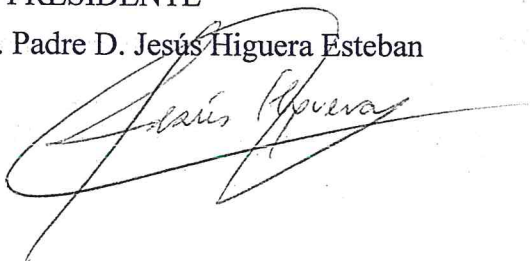 PRESIDENTE
. Padre D. Jesús Higuera Esteban
Jesús Higuera